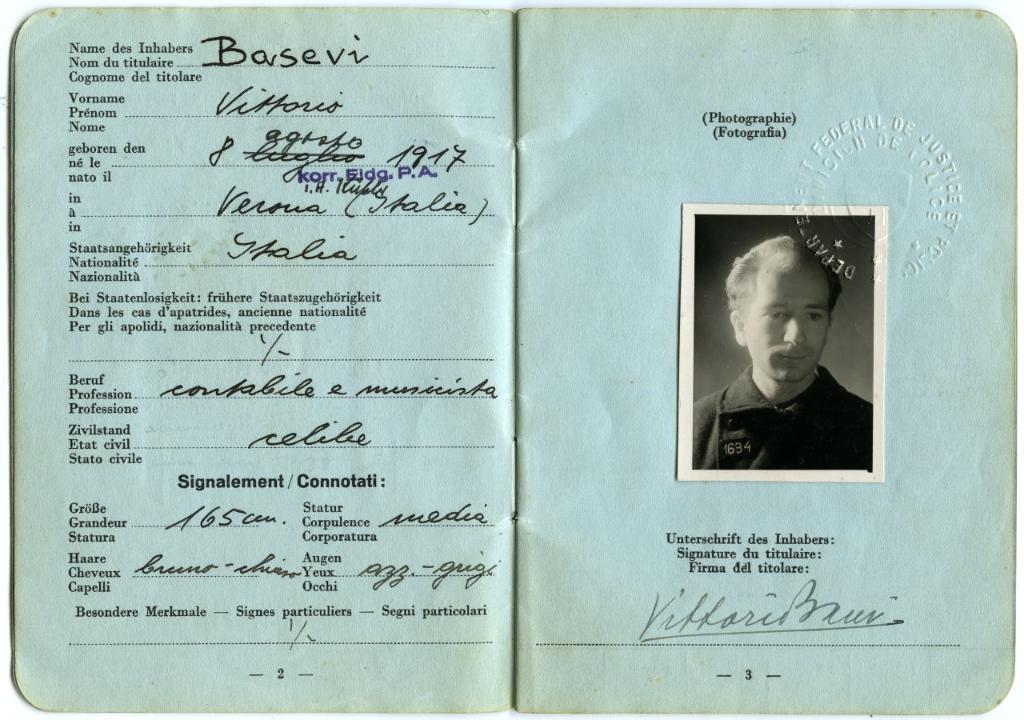 Name des Inhabers
Nom du titulaire Basevi
Cognome del titolare
Vorname
Prénom Vittorio
Nome
geboren den agosto
né le 8 luglio 1917
nato il korr. Eidg. P.A.
in i.A.
à Verona (Italia)
in
Staatsangehörigkeit
Nationalité Italia
Nazionalità
Bei Staatenlosigkeit: frühere Staatszugehörigkeit
Dans les cas d'apatrides, ancienne nationalité
Per gli apolidi, nazionalità precedente
-/-
Beruf
Profession contabile e musicista
Professione
Zivilstand
Etat civil celibe
Stato civile
Signalement / Connotati:
Größe
Grandeur 165 cm.
Statura
Statur
Corpulence media
Corporatura
Haare
Cheveux bruno-chiaro
Capelli
Augen
Yeux azz.-grigi
Occhi
Besondere Merkmale — Signes particuliers — Segni particolari
-/-
— 2 —
(Photographie)
(Fotografia)
DEPARTEMENT FEDERAL DE JUSTICE ET POLICE
DIVISION DE POLICE
1694
Unterschrift des Inhabers:
Signature du titulaire:
Firma del titolare:
Vittorio Basevi
— 3 —